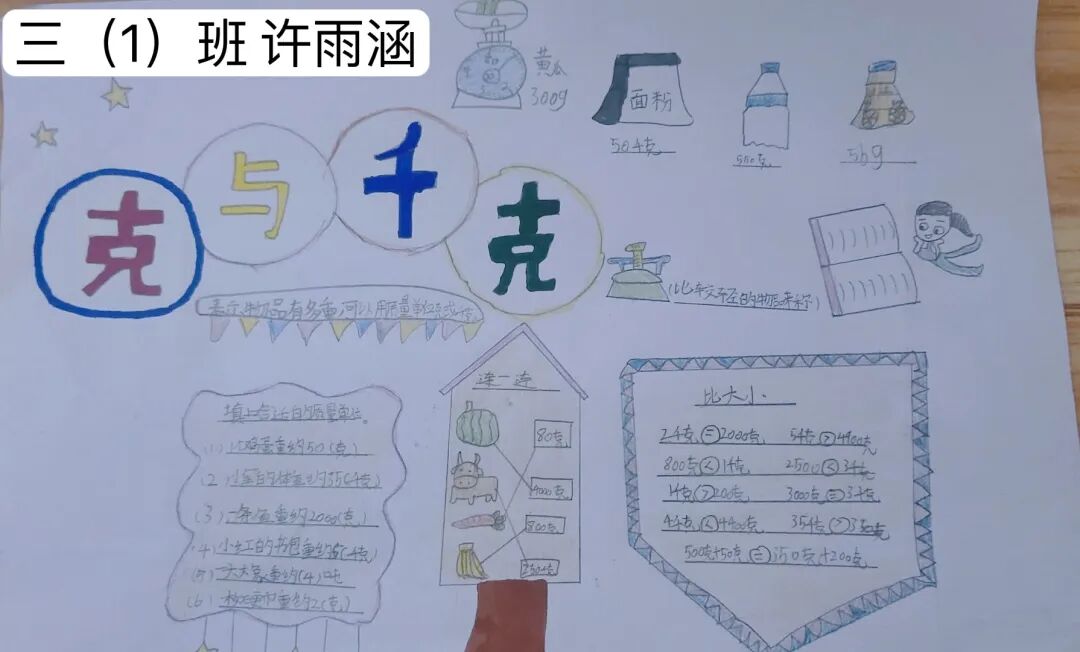 三（1）班 许雨涵
黄瓜
300g
面粉
50千克
550克
56g
克与千克
表示物品有多重,可以用质量单位克或千克。
(比较轻的物品来称)
填上合适的质量单位。
(1)一个鸡蛋重约50(克)
(2)小军的体重约35(千克)
(3)一条鱼重约2000(克)
(4)小红的书包重约(千克)
(5)一头大象重约(4)吨
(6)重约2(克)
连一连
80克
4000克
800克
250千克
比大小
2千克=2000克 5千克>4900克
800克<1千克 2500<3千克
1千克>200克 3000克=3千克
4千克<4400克 35千克>
500克+50克=350克+200克